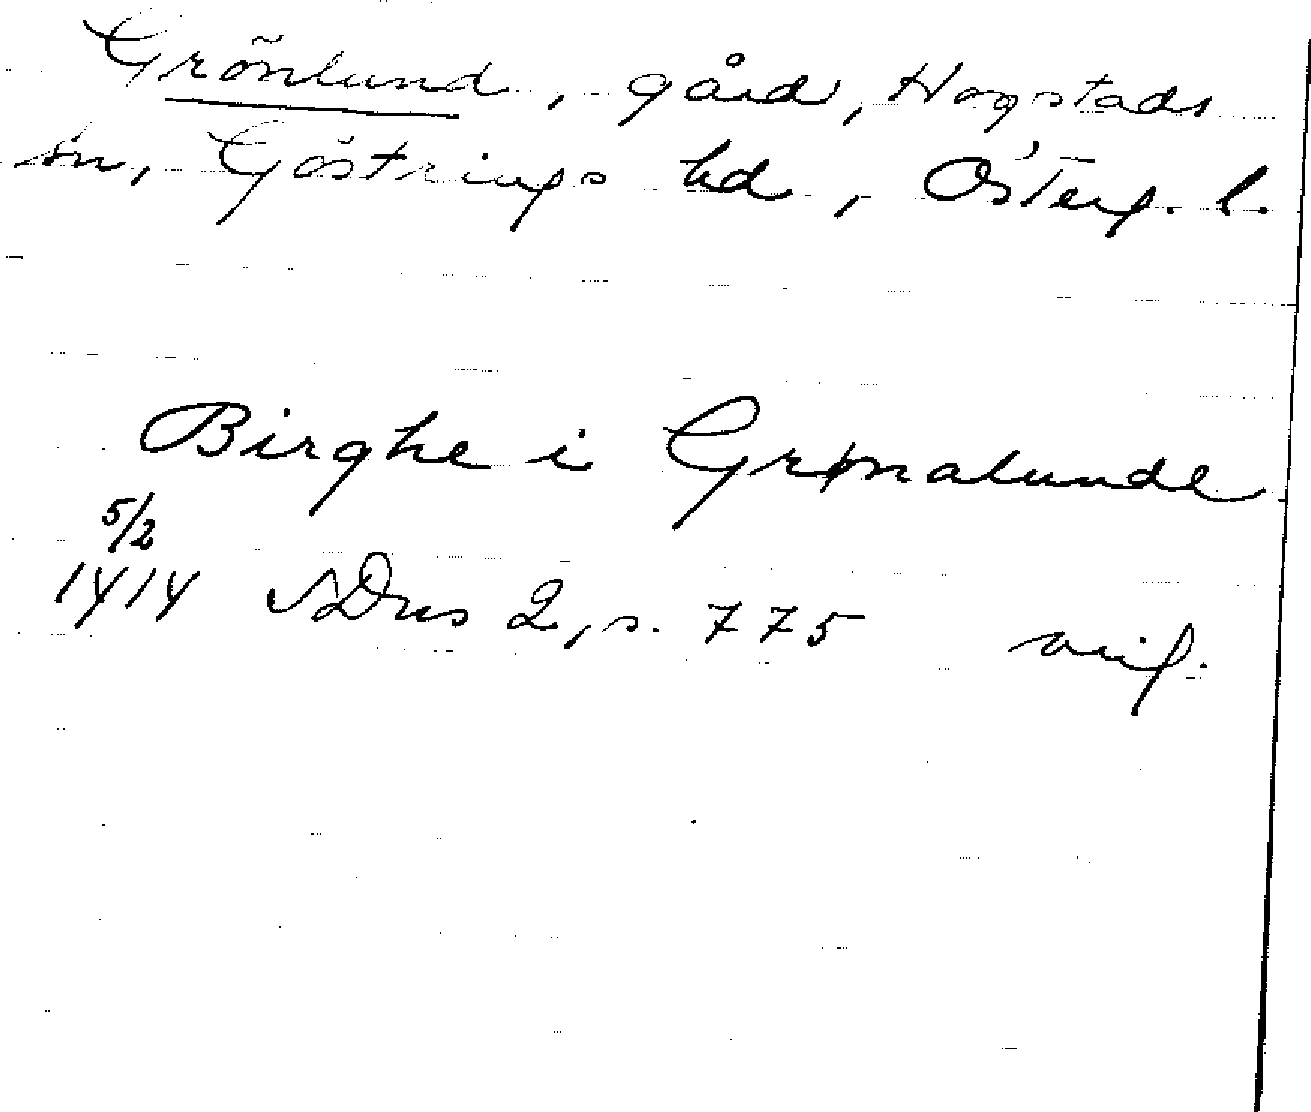 Grönlund, gård, Hogstads
sn, Göstrings hd, Österg. l.
Birghe i Grønalunde
5/2
1414 SDns 2, s. 775 orig.